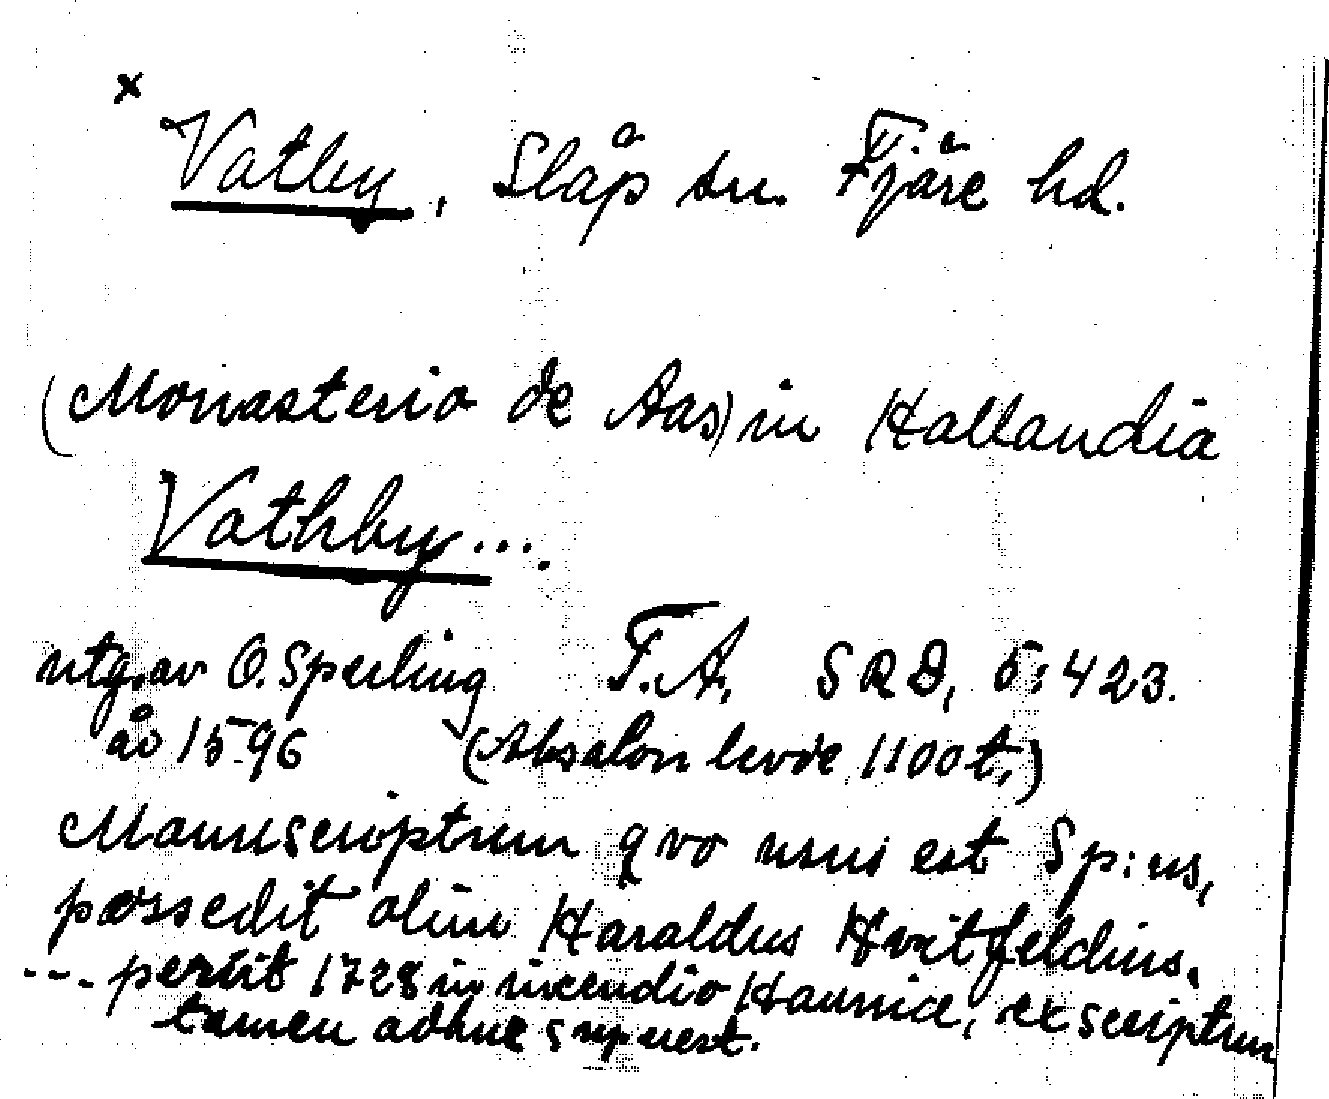 x
Vatby, Släp sn. Fjäre hd.
(Monasterio de Aas) in Hallandia
Vathby ....
utg. av O. Sperling T.A. SRD, 5:423.
år 1596 (Absalon levde 1100t.)
Manuscriptum qvo usus est Sp:us,
possedit olim Haraldus Hvitfeldius,
--- periit 1728 in incendio Hauniæ, exscriptum
tamen adhuc superest.